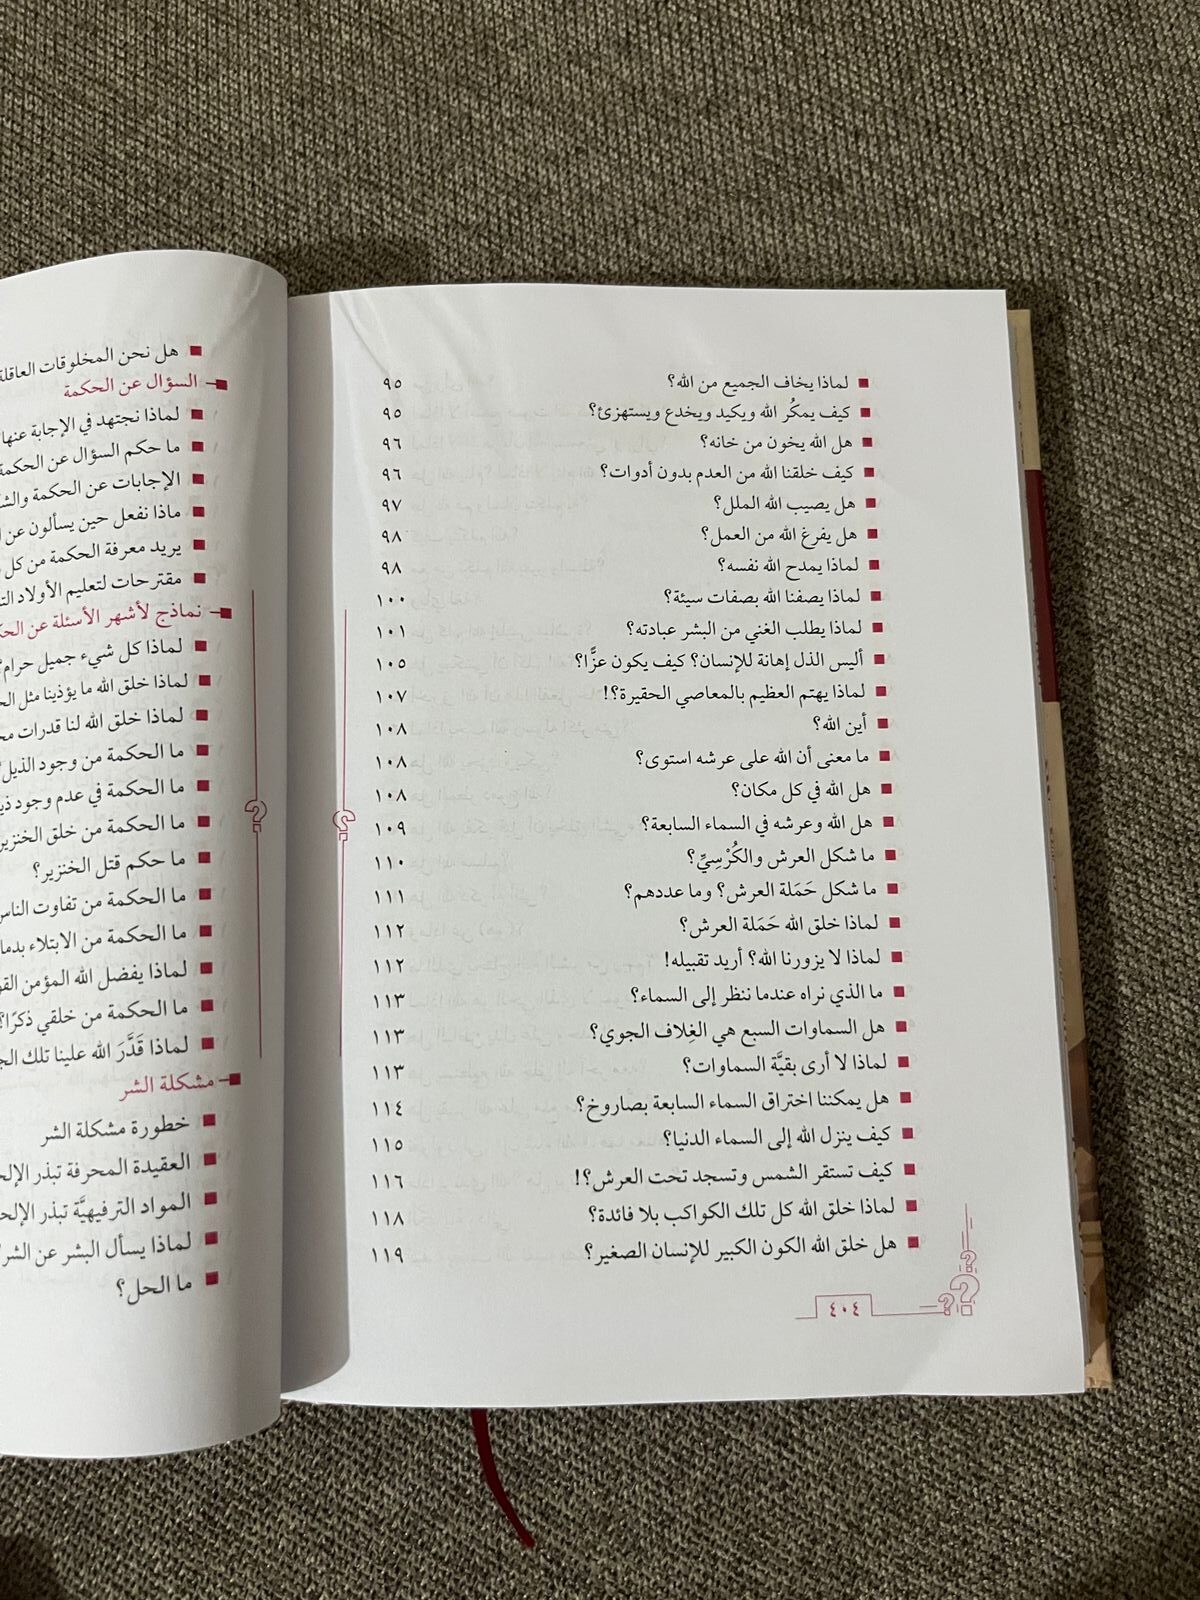 لماذا يخاف الجميع من الله؟ ٩٥
كيف يمكُر الله ويكيد ويخدع ويستهزئ؟ ٩٥
هل الله يخون من خانه؟ ٩٦
كيف خلقنا الله من العدم بدون أدوات؟ ٩٦
هل يصيب الله الملل؟ ٩٧
هل يفرغ الله من العمل؟ ٩٨
لماذا يمدح الله نفسه؟ ٩٨
لماذا يصفنا الله بصفات سيئة؟ ١٠٠
لماذا يطلب الغني من البشر عبادته؟ ١٠١
أليس الذل إهانة للإنسان؟ كيف يكون عزًّا؟ ١٠٥
لماذا يهتم العظيم بالمعاصي الحقيرة؟! ١٠٧
أين الله؟ ١٠٨
ما معنى أن الله على عرشه استوى؟ ١٠٨
هل الله في كل مكان؟ ١٠٨
هل الله وعرشه في السماء السابعة؟ ١٠٩
ما شكل العرش والكُرْسِيِّ؟ ١١٠
ما شكل حَمَلة العرش؟ وما عددهم؟ ١١١
لماذا خلق الله حَمَلة العرش؟ ١١٢
لماذا لا يزورنا الله؟ أريد تقبيله! ١١٢
ما الذي نراه عندما ننظر إلى السماء؟ ١١٣
هل السماوات السبع هي الغِلاف الجوي؟ ١١٣
لماذا لا أرى بقيَّة السماوات؟ ١١٣
هل يمكننا اختراق السماء السابعة بصاروخ؟ ١١٤
كيف ينزل الله إلى السماء الدنيا؟ ١١٥
كيف تستقر الشمس وتسجد تحت العرش؟! ١١٦
لماذا خلق الله كل تلك الكواكب بلا فائدة؟ ١١٨
هل خلق الله الكون الكبير للإنسان الصغير؟ ١١٩
٤٠٤
هل نحن المخلوقات العاقلة
السؤال عن الحكمة
لماذا نجتهد في الإجابة عنها
ما حكم السؤال عن الحكمة
الإجابات عن الحكمة
ماذا نفعل حين يسألون عن
يريد معرفة الحكمة من كل
مقترحات لتعليم الأولاد
نماذج لأشهر الأسئلة عن
لماذا كل شيء جميل حرام؟
لماذا خلق الله ما يؤذينا مثل
لماذا خلق الله لنا قدرات
ما الحكمة من وجود الذيل
ما الحكمة في عدم وجود
ما الحكمة من خلق الخنزير
ما حكم قتل الخنزير؟
ما الحكمة من تفاوت الناس
ما الحكمة من الابتلاء
لماذا يفضل الله المؤمن
ما الحكمة من خلقي ذكرًا؟
لماذا قَدَّرَ الله علينا تلك
مشكلة الشر
خطورة مشكلة الشر
العقيدة المحرفة تبذر
المواد الترفيهيَّة تبذر
لماذا يسأل البشر عن الشر
ما الحل؟